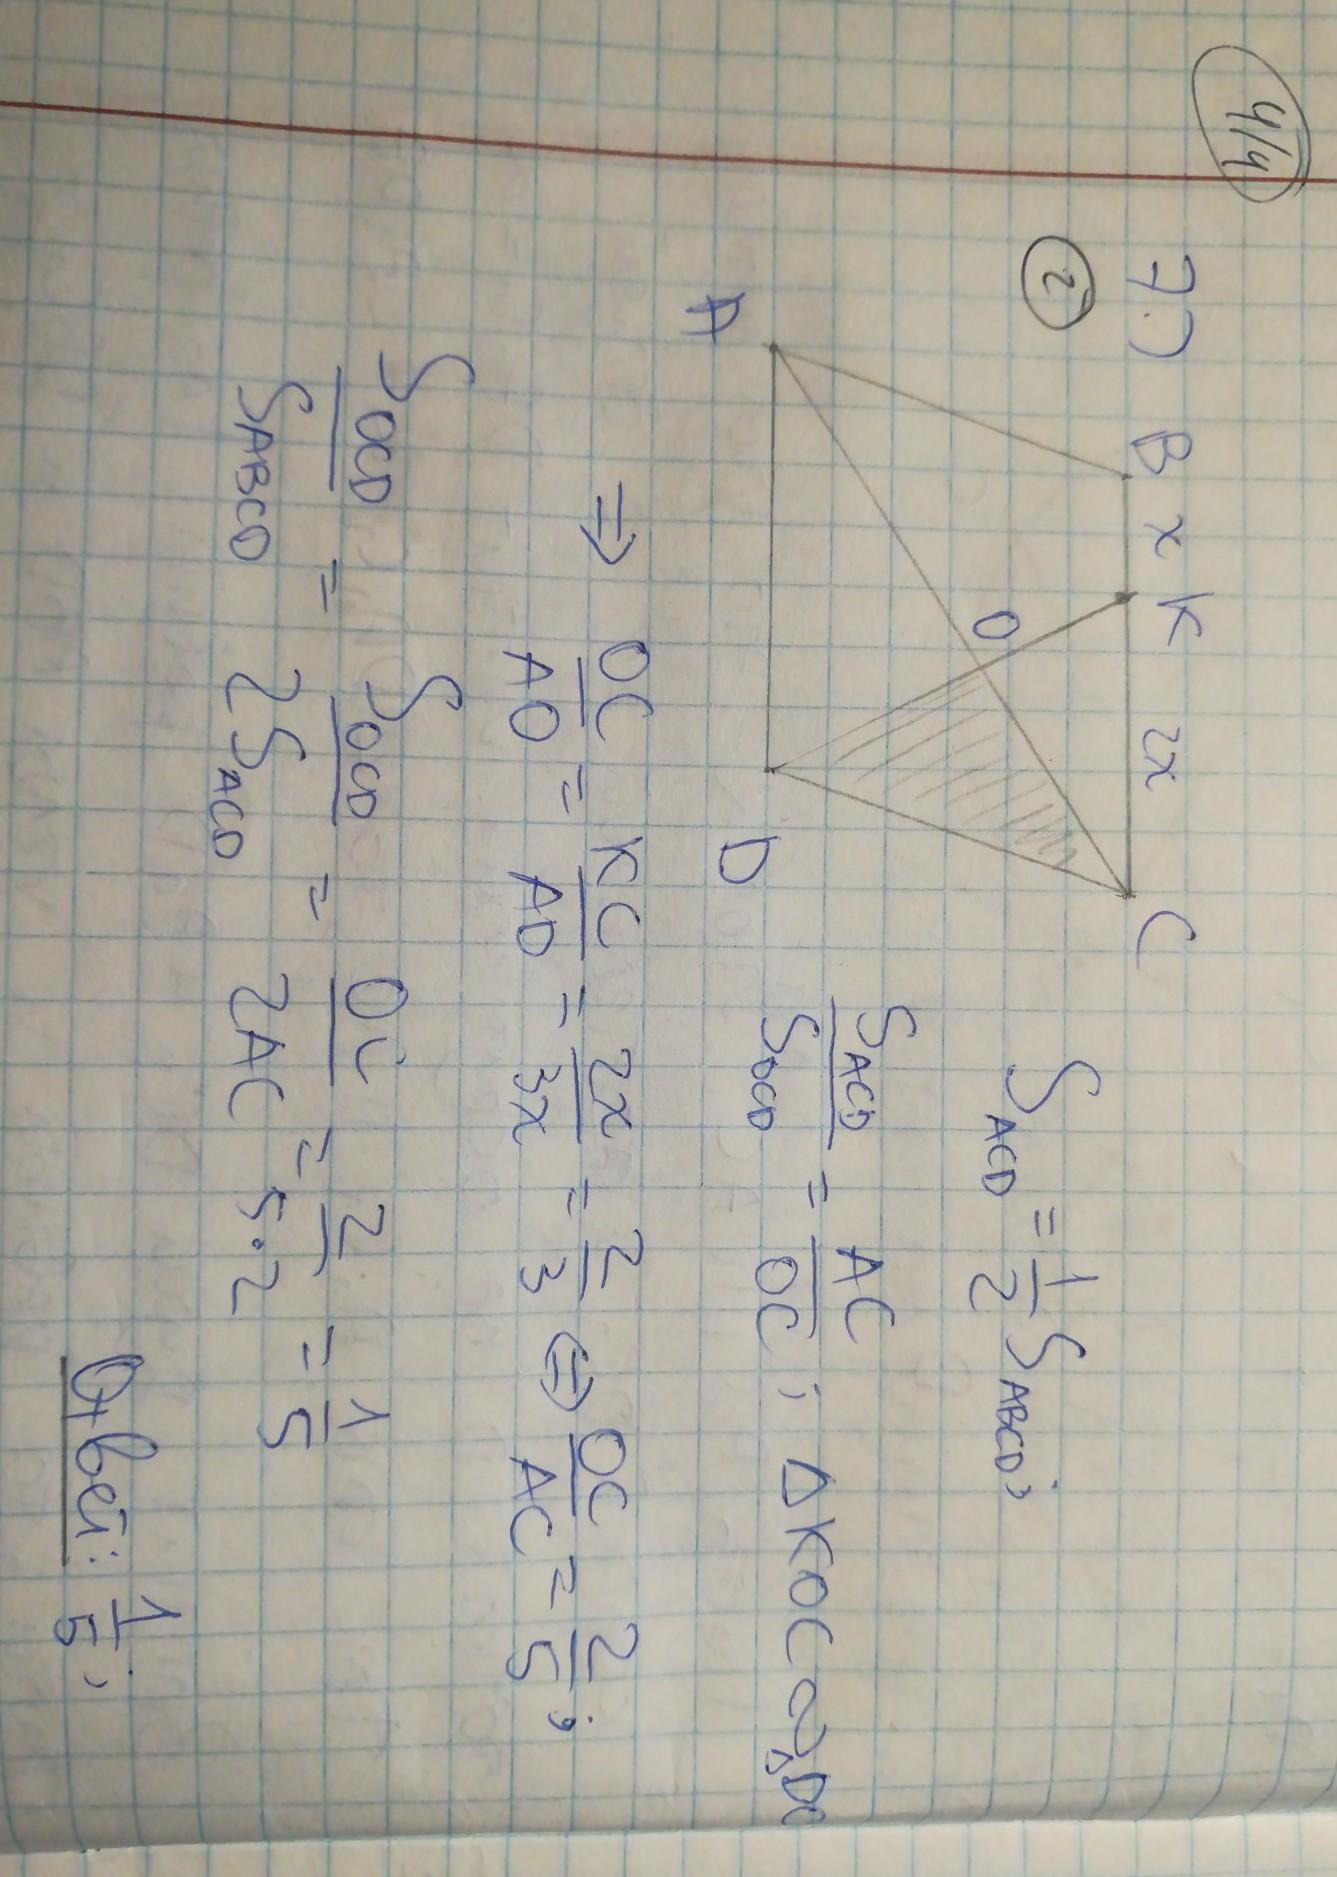 4/4
7.) B x K 2x C
2
O
A D
S_ACD = 1/2 S_ABCD;
S_ACD/S_OCD = AC/OC; ΔKOC ∾
⇒ OC/AO = KC/AD = 2x/3x = 2/3 ⇔ OC/AC = 2/5;
S_OCD/S_ABCD = S_OCD/2S_ACD = OC/2AC = 2/5·2 = 1/5
Ответ: 1/5;